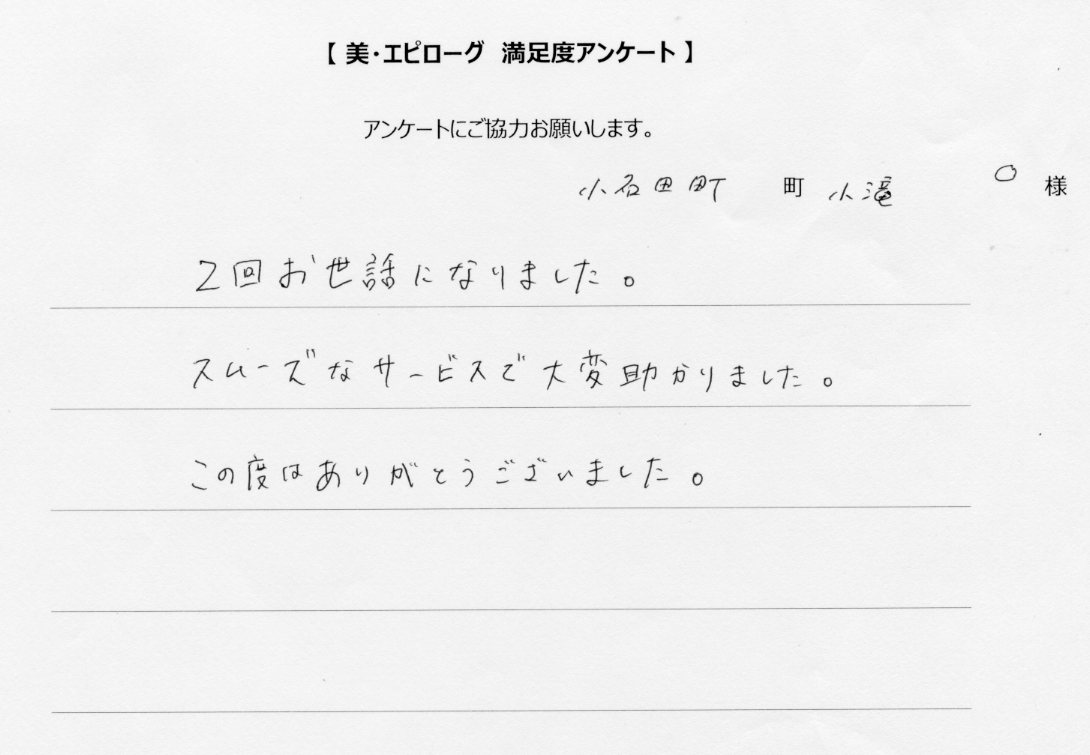 【 美・エピローグ 満足度アンケート 】
アンケートにご協力お願いします。
小石田町 町 小滝 ○ 様
2回お世話になりました。
スムーズなサービスで大変助かりました。
この度はありがとうございました。